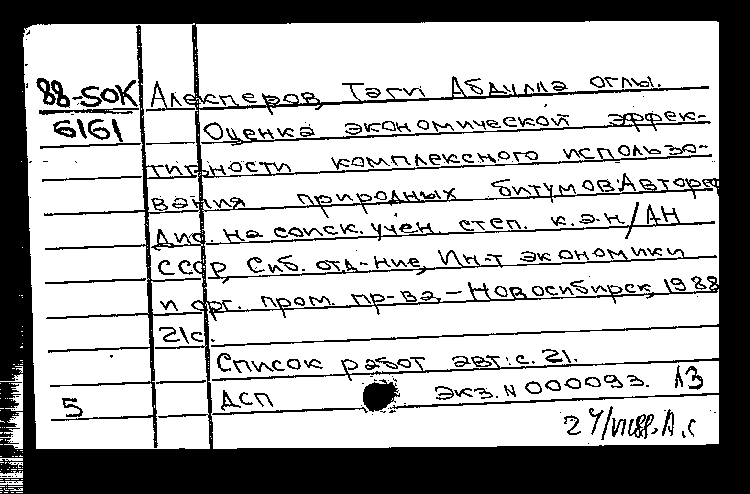 88-50К Алекперов, Таги Абдулла оглы.
6161 Оценка экономической эффек-
тивности комплексного использо-
вания природных битумов: Автореф
дис. на соиск. учен. степ. к.э.н/АН
СССР, Сиб. отд-ние, Ин-т экономики
и орг. пром. пр-ва, – Новосибирск, 1988
21с.
Список работ авт: с. 21.
5 ДСП Экз. N 000093. А3